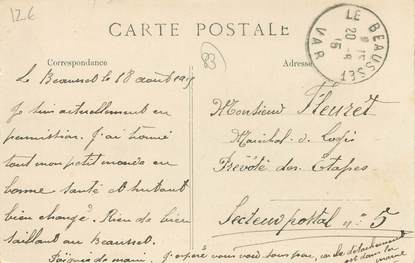 12.6
CARTE POSTALE
Correspondance
Adresse
83
LE BEAUSSET
20 - 8
15
VAR
Le Beausset le 18 août 1915
Je suis actuellement en
permission. J'ai trouvé
tout mon petit monde en
bonne santé et surtout
bien changé. Rien de bien
saillant au Beausset.
Poignée de main. J'espère vous voir sous peu, car le détachement
est dans la
marne
Monsieur Fleuret
Maréchal d. Logis
Prévôté des Étapes
Secteur postal n° 5